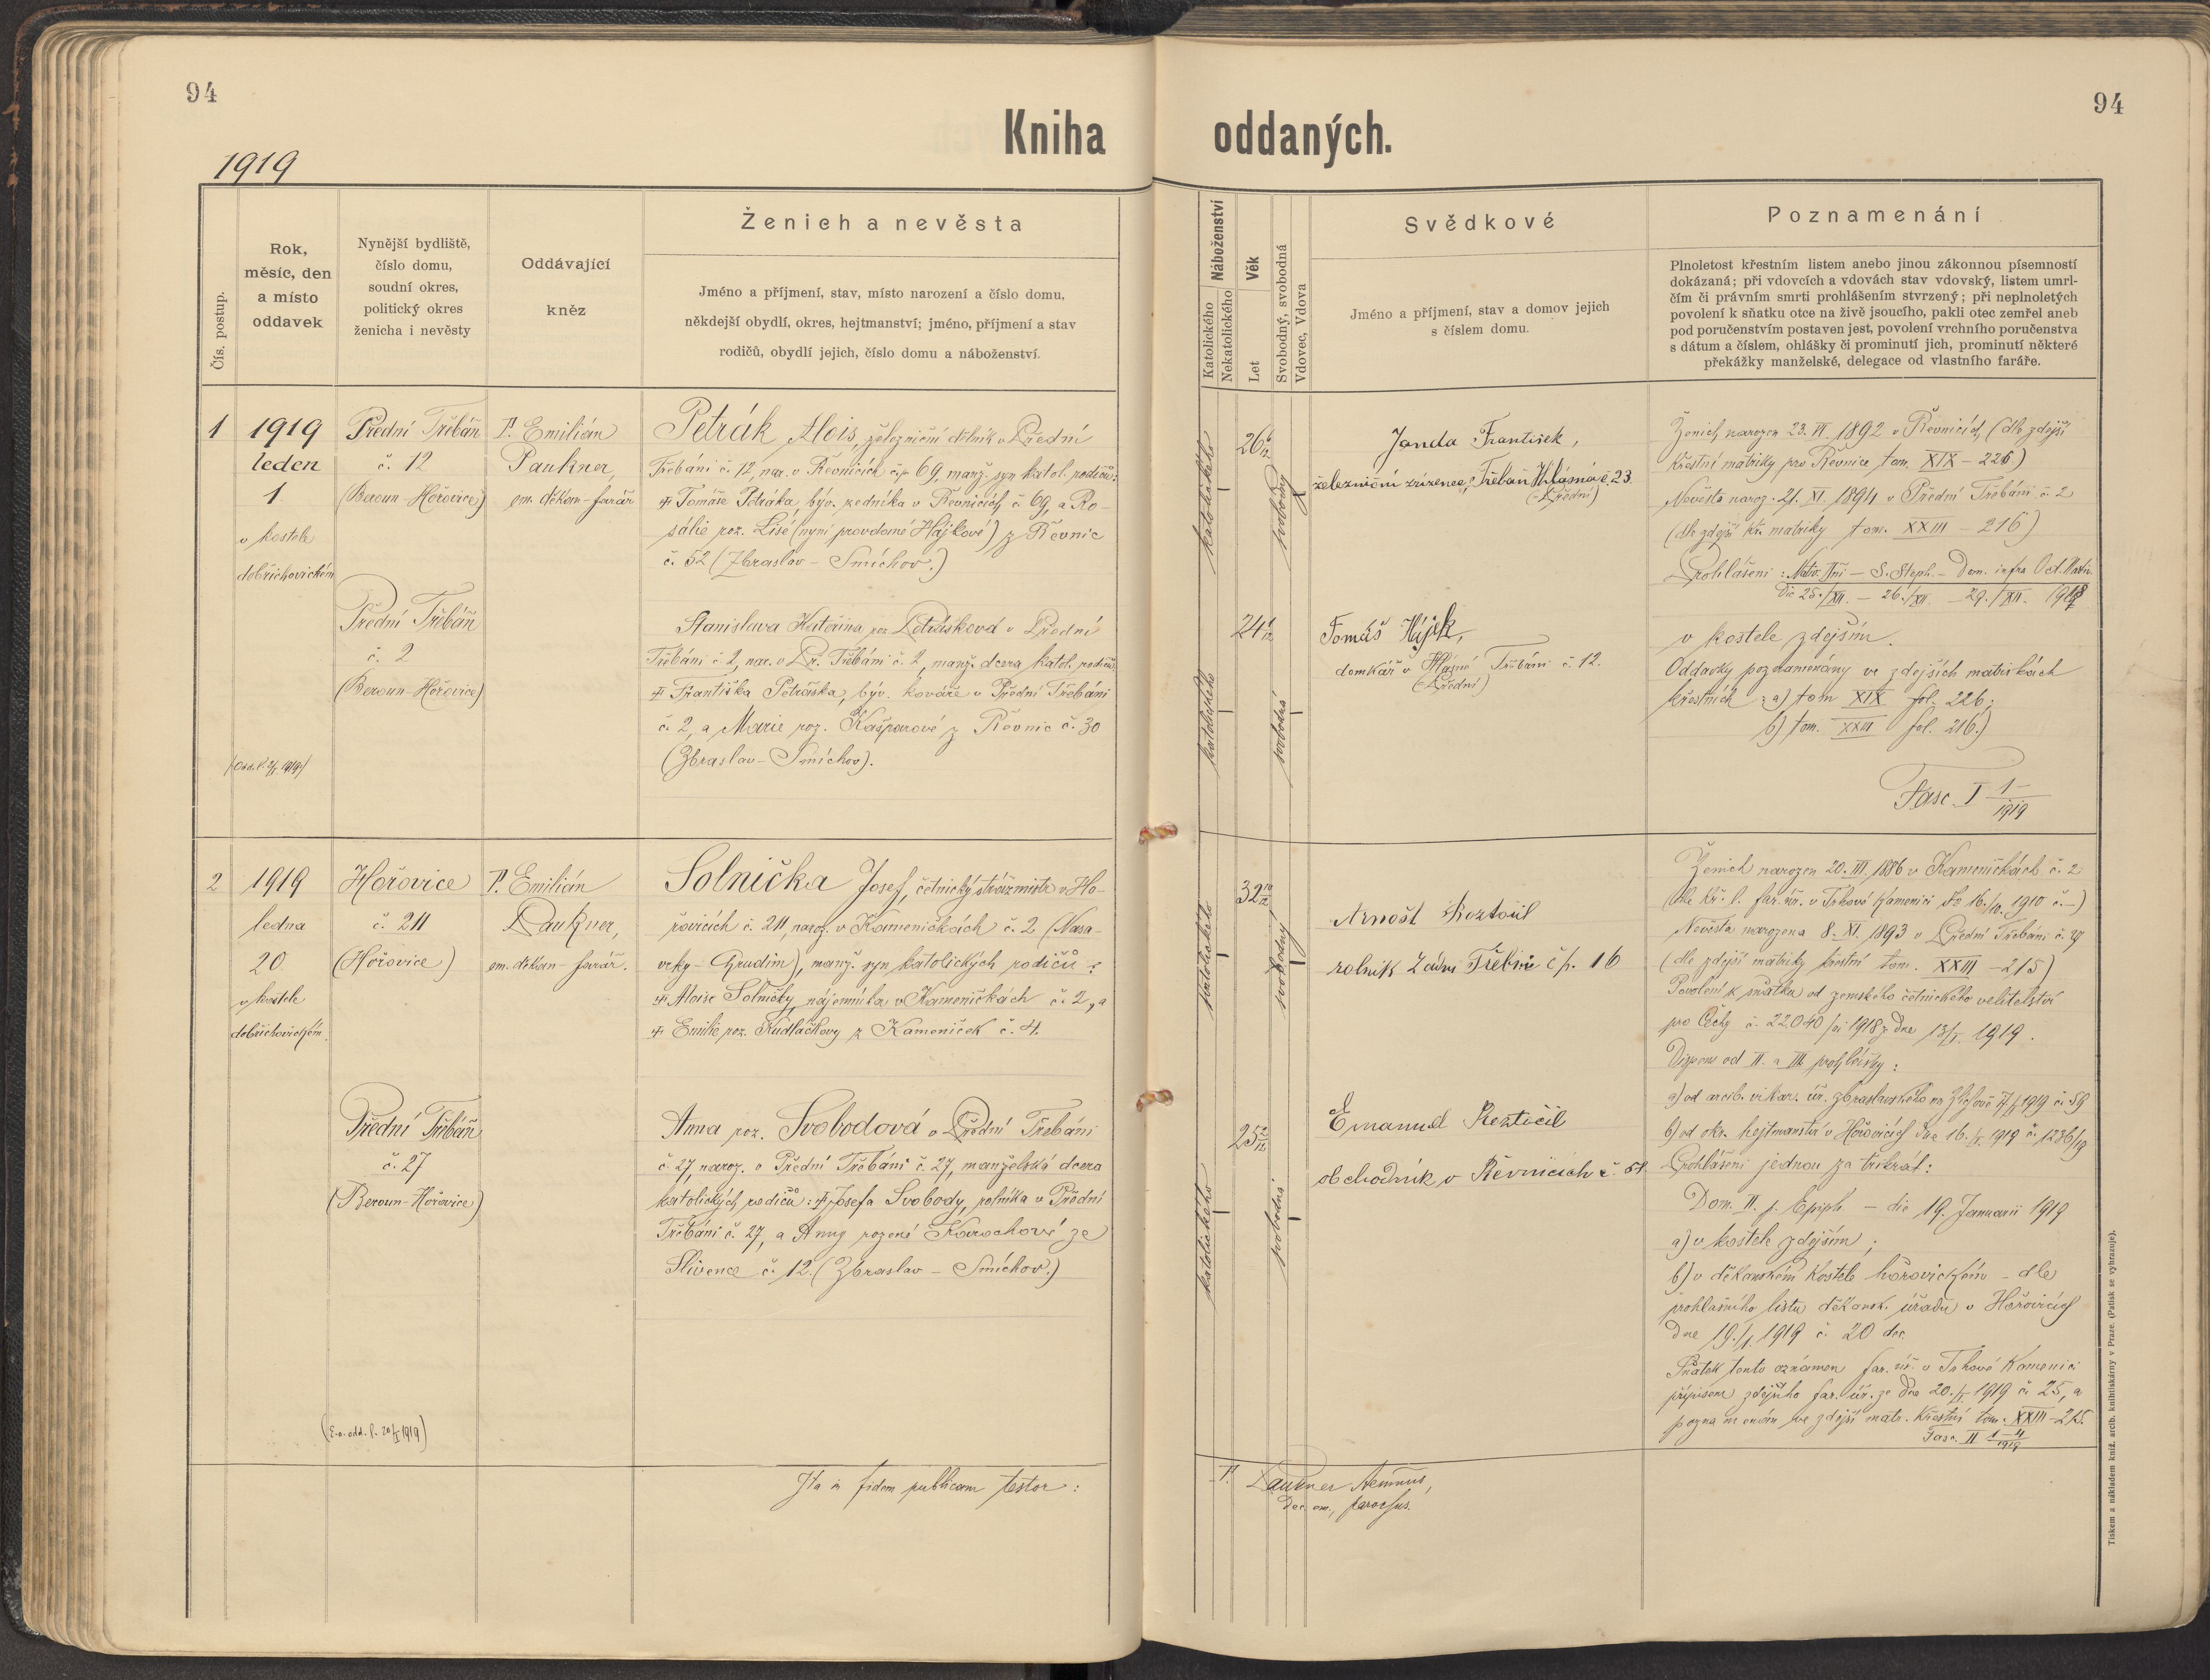 94
94
Kniha oddaných.
1919
Čís. postup.
Rok,
měsíc, den
a místo
oddavek
Nynější bydliště,
číslo domu,
soudní okres,
politický okres
ženicha i nevěsty
Oddávající
kněz
Ženich a nevěsta
Jméno a příjmení, stav, místo narození a číslo domu,
někdejší obydlí, okres, hejtmanství; jméno, příjmení a stav
rodičů, obydlí jejich, číslo domu a náboženství.
Náboženství
Katolického
Nekatolického
Věk
Let
Svobodný, svobodná
Vdovec, Vdova
Svědkové
Jméno a příjmení, stav a domov jejich
s číslem domu.
Poznamenání
Plnoletost křestním listem anebo jinou zákonnou písemností
dokázaná; při vdovcích a vdovách stav vdovský, listem umrl-
čím či právním smrti prohlášením stvrzený; při neplnoletých
povolení k sňatku otce na živě jsoucího, pakli otec zemřel aneb
pod poručenstvím postaven jest, povolení vrchního poručenstva
s dátum a číslem, ohlášky či prominutí jich, prominutí některé
překážky manželské, delegace od vlastního faráře.
1
1919
leden
1
v kostele
dobřichovickém
Přední Třebáň
č. 12
(Beroun-Hořovice)
P. Emilián
Paukner,
em. děkan-farář
Petrák Alois, železniční dělník v Přední
Třebáni č. 12, nar. v Řevnicích čp. 69, manž. syn katol. rodičů:
Tomáše Petráka, býv. zedníka v Řevnicích č. 69, a Ro-
sálie roz. Lisé (nyní provdané Hájkové) z Řevnic
č. 52 (Zbraslav - Smíchov.)
Přední Třebáň
č. 2
(Beroun-Hořovice)
Stanislava Kateřina roz. Petrásková v Přední
Třebáni č. 2, nar. v Př. Třebáni č. 2, manž. dcera katol. rodičů:
Františka Petráska, býv. kováře v Přední Třebáni
č. 2, a Marie roz. Kašparové z Řevnic č. 30
(Zbraslav - Smíchov).
katolického
26
svobodný
Janda František,
železniční zřízenec, Třebaň Hlásná č. 23
(Přední)
katolického
24
svobodná
Tomáš Hájek,
domkář v Hlásné Třebáni č. 12.
(Přední)
Ženich narozen 23. VI. 1892 v Řevnicích (dle zdejší
křestní matriky pro Řevnice tom. XIX - 226)
Nevěsta naroz. 21. XI. 1894 v Přední Třebáni č. 2
(dle zdejší kř. matriky tom. XXIII - 216)
Prohlášení: Nativ. Dni - S. Steph. - Dom. infra Oct. Nativ.
Die 25./XII. - 26./XII. - 29./XII. 1918
v kostele zdejším.
Oddavky poznamenány ve zdejších matrikách
křestních: a) tom XIX fol. 226;
b) tom. XXIII fol. 216.)
Fasc. I 1/1919
2
1919
ledna
20
v kostele
dobřichovickém.
Hořovice
č. 211
(Hořovice)
P. Emilián
Paukner,
em. děkan-farář.
Solnička Josef, četnický strážmistr v Ho-
řovicích č. 211, naroz. v Kameničkách č. 2 (Nasa-
vrky - Chrudim), manž. syn katolických rodičů:
Aloise Solničky, nájemníka v Kameničkách č. 2, a
Emilie roz. Kudláčkovy z Kameniček č. 4.
Přední Třebáň
č. 27
(Beroun-Hořovice)
Anna roz. Svobodová v Přední Třebáni
č. 27, naroz. v Přední Třebáni č. 27, manželská dcera
katolických rodičů: Josefa Svobody, rolníka v Přední
Třebáni č. 27, a Anny rozené Karochové ze
Slivence č. 12. (Zbraslav - Smíchov.)
katolického
32
svobodný
Arnošt Roztočil
rolník Zadní Třebáň čp. 16
katolického
25
svobodná
Emanuel Roztočil
obchodník v Řevnicích č.
Ženich narozen 20. III. 1886 v Kameničkách č. 2
(dle kř. l. far. úř. v Trhové Kamenici de 16./10. 1910 č. -)
Nevěsta narozena 8. XI. 1893 v Přední Třebáni č. 27
(dle zdejší matriky křestní tom. XXIII - 215)
Povolení k sňatku od zemského četnického velitelství
pro Čechy č. 22.040 1918 z dne 13/I. 1919.
Dispens od II. a III. prohlášky:
a) od arcib. vikar. úř. zbraslavského na Zlíchově 1919 č. 59
b) od okr. hejtmanství v Hořovicích dne 16. I. 1919 č. 1236/19
Prohlášeni jednou za třikrát:
Dom. II. p. Epiph. - die 19. Januarii 1919
a) v kostele zdejším;
b) v děkanském kostele hořovickém - dle
prohlašního listu děkansk. úřadu v Hořovicích
dne 19./1. 1919 č. 20 dec.
Sňatek tento oznámen far. úř. v Trhové Kamenici
přípisem zdejšího far. úř. ze dne 20./I. 1919 č. 25, a
poznamenán ve zdejší matr. křestní tom. XXIII - 215.
Fasc. II 1-4/1919
Ita in fidem publicam testor:
P. Paukner
Dec. em., parochus.
Tiskem a nákladem kníž. arcib. knihtiskárny v Praze. (Patisk se vyhrazuje).